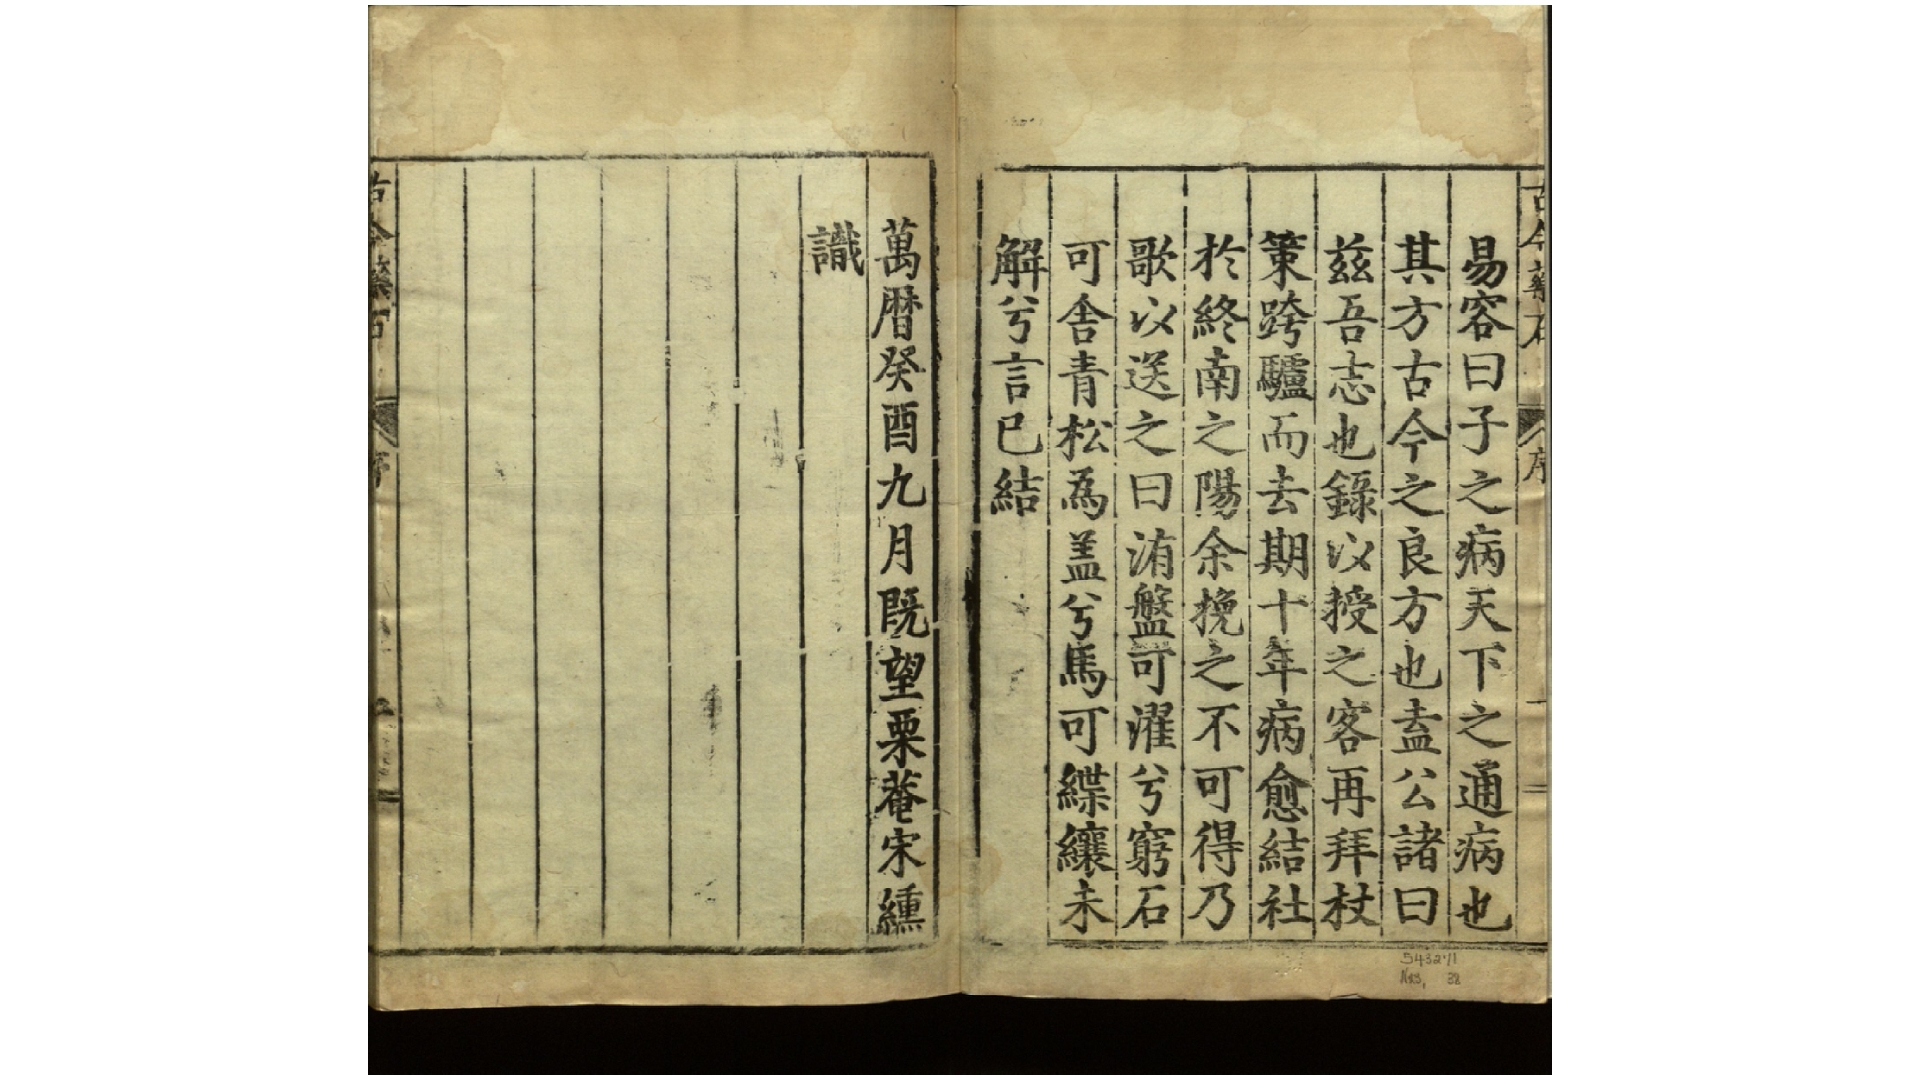 古今藥石
序
易容曰子之病天下之通病也
其方古今之良方也盍公諸曰
兹吾志也錄以授之客再拜杖
策跨驢而去期十年病愈結社
於終南之陽余挽之不可得乃
歌以送之曰洧盤可濯兮窮石
可舍青松爲盖兮馬可緤纕未
解兮言已結
萬暦癸酉九月既望栗菴宋纁
識
古今藥石
序
5432.11